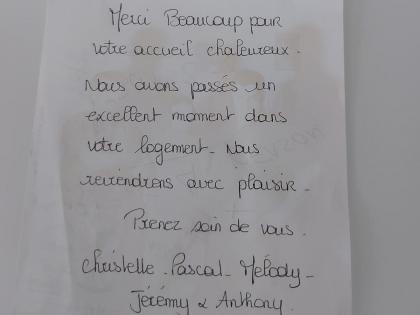 Merci Beaucoup pour
votre accueil chaleureux.
Nous avons passés un
excellent moment dans
votre logement. Nous
reviendrons avec plaisir.
Prenez soin de vous.
Christelle - Pascal - Mélody -
Jérémy & Anthony.